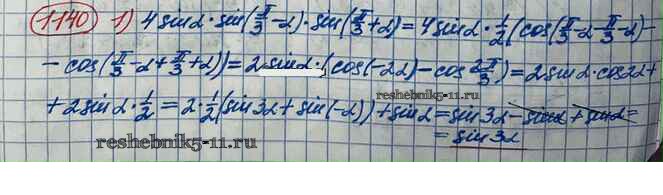 1140 1) 4 sin α · sin(π/3 - α) · sin(π/3 + α) = 4 sin α · 1/2 (cos(π/3 - α - π/3 - α) -
- cos(π/3 - α + π/3 + α)) = 2 sin α · (cos(-2α) - cos 2π/3) = 2 sin α · cos 2α +
+ 2 sin α · 1/2 = 2 · 1/2 (sin 3α + sin(-α)) + sin α = sin 3α - sin α + sin α =
= sin 3α
reshebnik5-11.ru
reshebnik5-11.ru